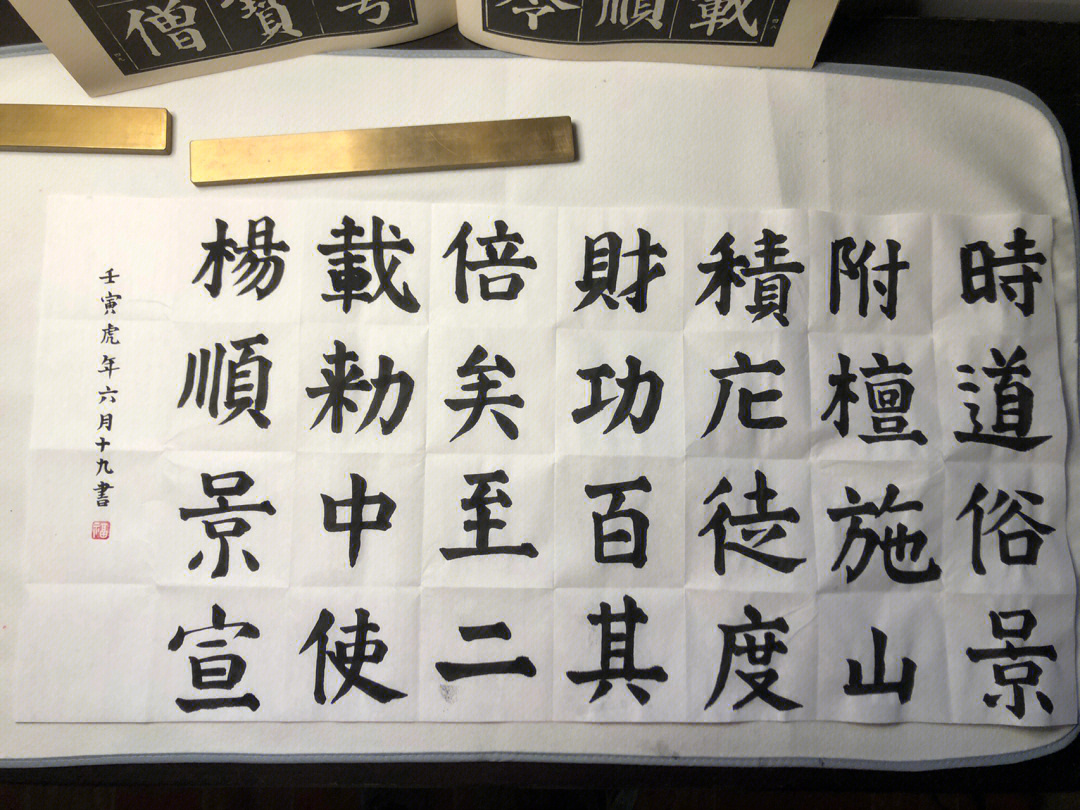 載
順
寶
僧
時道俗景
附檀施山
積庀徒度
財功百其
倍矣至二
載勅中使
楊順景宣
壬寅虎年六月十九書